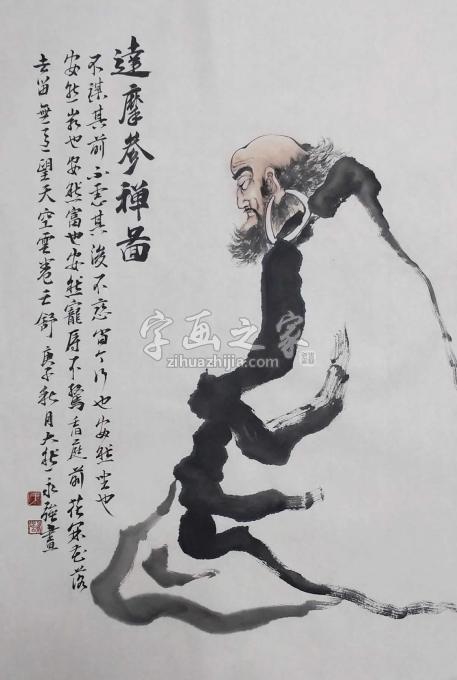 達摩參禪圖
不谋其前不慮其後不恋當今行也安然坐也
安然窮也安然富也安然寵辱不驚看庭前花開花落
去留無意望天空雲卷雲舒庚子秋月大然永強畫
字画之家
zihuazhijia.com